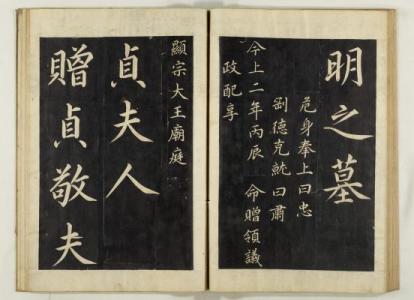 明之墓
危身奉上曰忠
剛德克就曰肅
今上二年丙辰 命贈領議
政配享
顯宗大王廟庭
貞夫人
贈貞敬夫